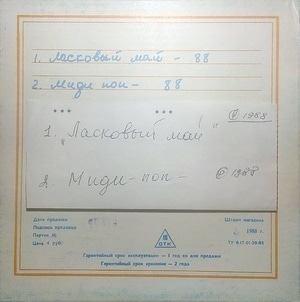 1. Ласковый май - 88
2. Миди поп - 88
*** ***
1. "Ласковый май" ℗ 1988
2. Миди-поп - ℗ 1988
Дата продажи
Подпись продавца
Партия №
Цена
ОТК
Штамп магазина
1988 г.
ТУ 6.17-01.09-83
Гарантийный срок эксплуатации — 1 год со дня продажи
Гарантийный срок хранения — 2 года